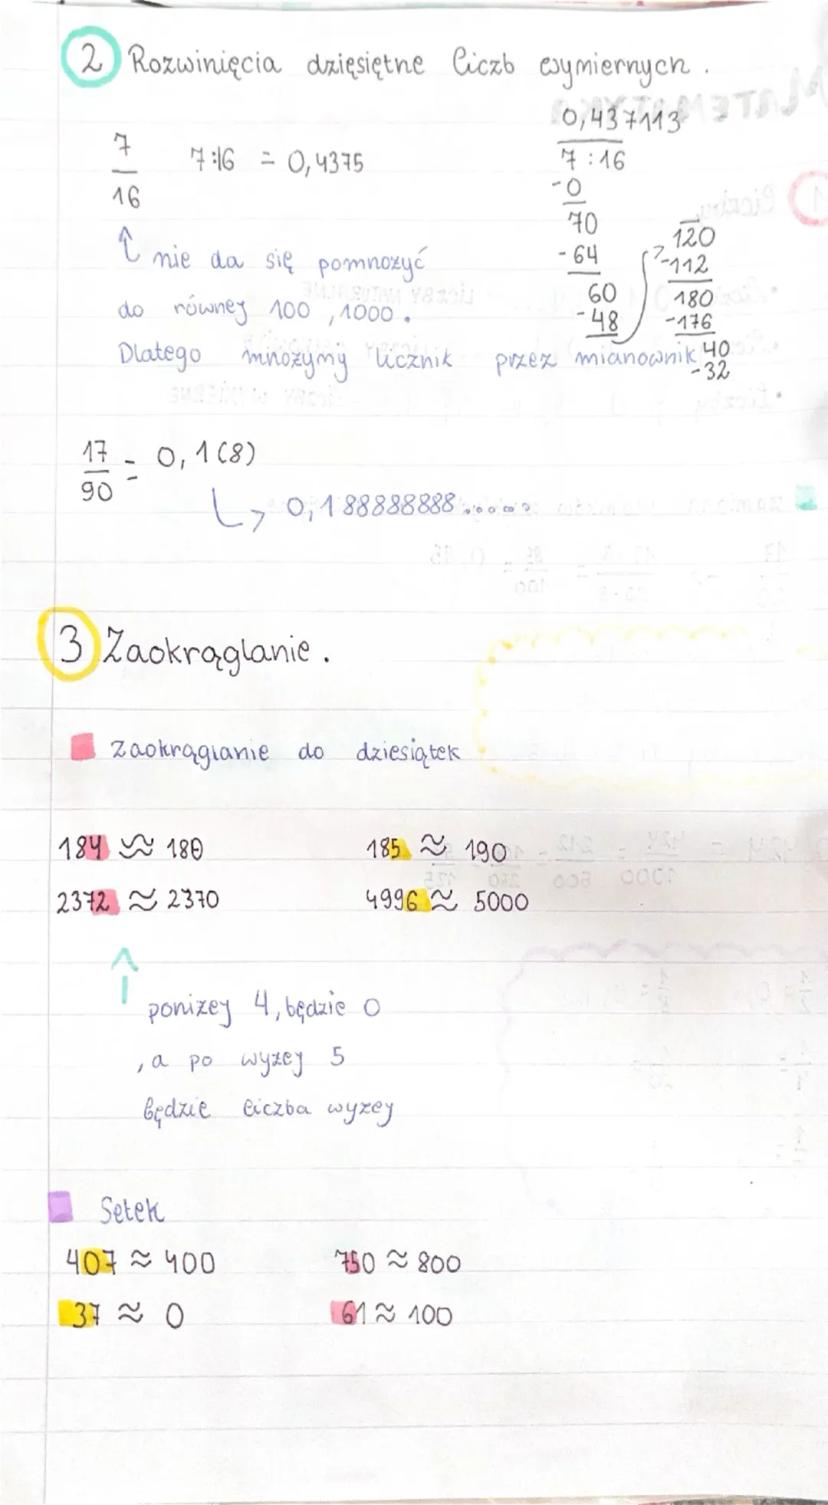 2 Rozwinięcia dzięsiętne liczb wymiernych.
7
16
7:16 = 0,4375
0,437113
7 : 16
-0
70
-64
60
-48
120
-112
180
-176
40
-32
nie da się pomnożyć
do równej 100, 1000.
Dlatego mnożymy licznik przez mianownik
17
90
= 0,1(8)
0,188888888.......
3 Zaokrąglanie.
Zaokrąglanie do dziesiątek
184 ≈ 180
185 ≈ 190
2372 ≈ 2370
4996 ≈ 5000
poniżej 4, będzie 0
, a po wyżej 5
będzie liczba wyżey
Setek
407 ≈ 400
750 ≈ 800
37 ≈ 0
61 ≈ 100